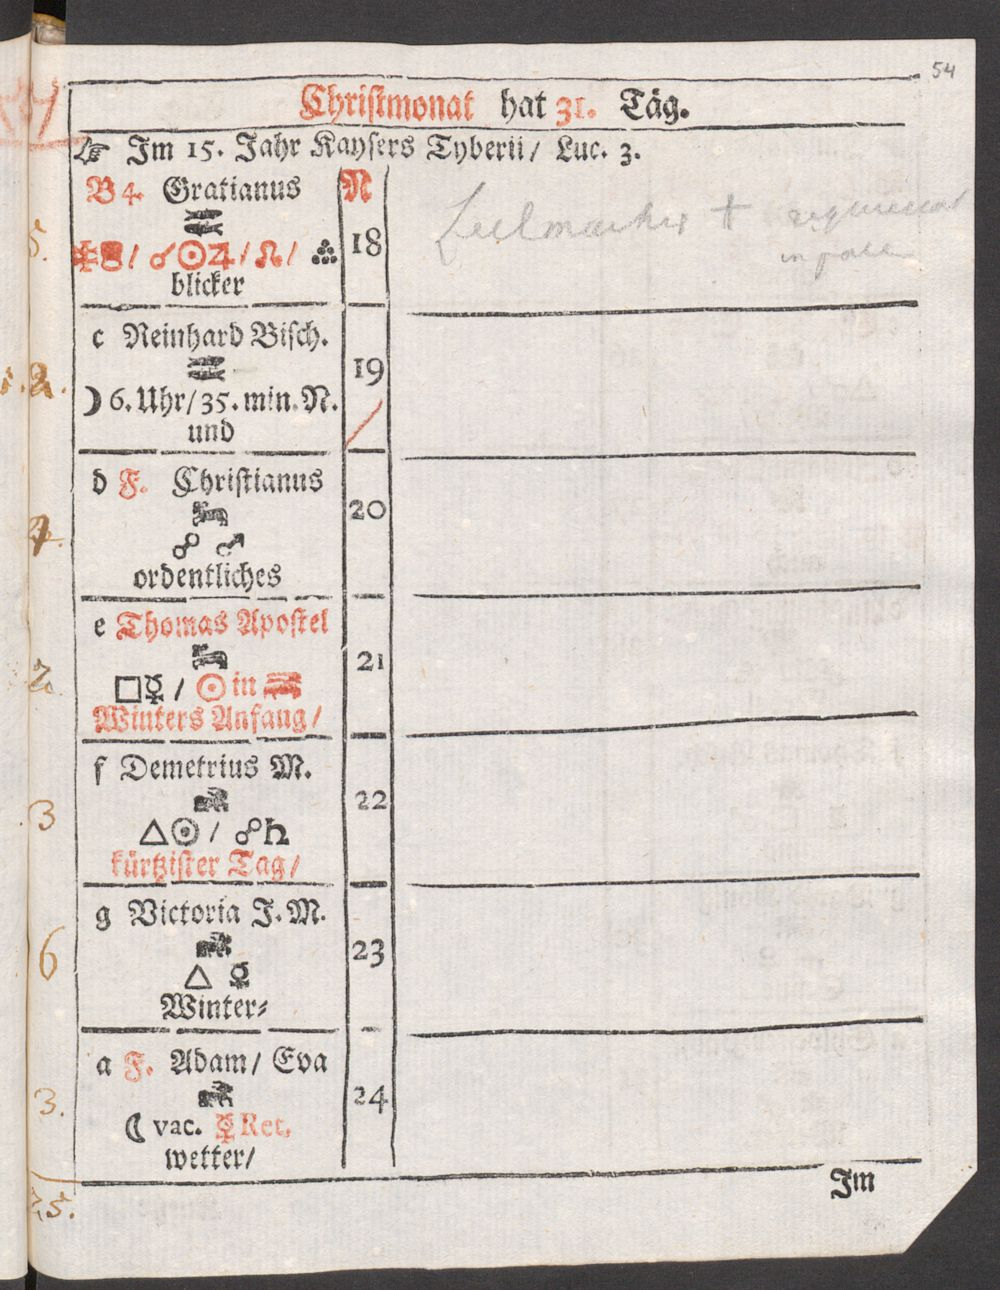 54
Christmonat hat 31. Täg.
☞ Im 15. Jahr Kaysers Tyberii/ Luc. 3.
B 4. Gratianus N
☌☉♃/ ☊/
18
blicker
c Reinhard Bisch.
19
☽ 6. Uhr/ 35. min. N.
und
d F. Christianus
20
☍ ♂
ordentliches
e Thomas Apostel
21
□☿ / ☉ in
Winters Anfang/
f Demetrius M.
22
△☉ / ☍♄
kürtzister Tag/
g Victoria J. M.
23
△ ☿
Winter⸗
a F. Adam/ Eva
24
☾ vac. ☿ Ret.
wetter/
Im
5.
2.
2
3
6
3.
25.